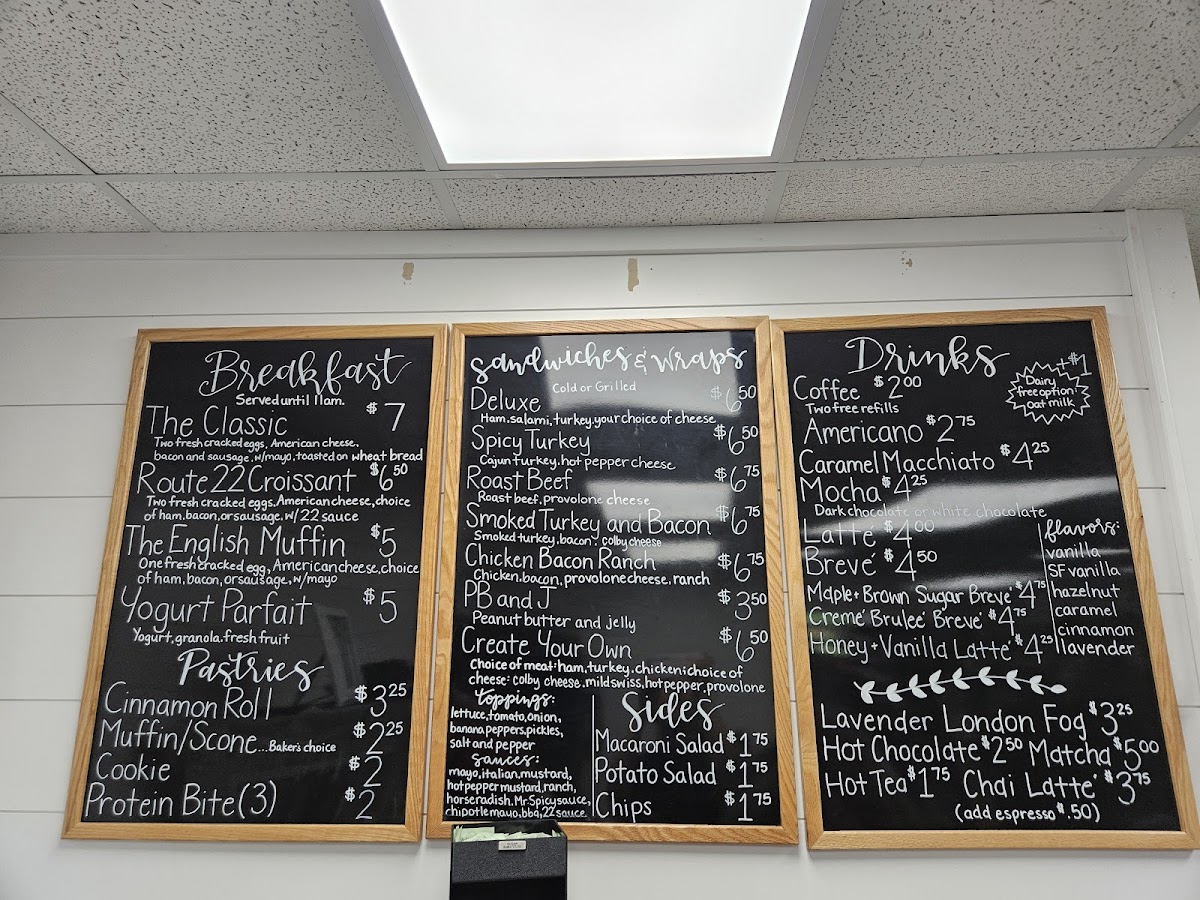 Breakfast
Served until 11am.
The Classic $7
Two fresh cracked eggs, American cheese,
bacon and sausage. w/mayo, toasted on wheat bread
Route 22 Croissant $6.50
Two fresh cracked eggs. American cheese, choice
of ham, bacon, or sausage. w/ 22 sauce
The English Muffin $5
One fresh cracked egg, American cheese, choice
of ham, bacon, or sausage, w/mayo
Yogurt Parfait $5
Yogurt, granola. fresh fruit
Pastries
Cinnamon Roll $3.25
Muffin/Scone...Baker's choice $2.25
Cookie $2
Protein Bite (3) $2
Sandwiches & Wraps
Cold or Grilled
Deluxe $6.50
Ham. salami, turkey. your choice of cheese
Spicy Turkey $6.50
Cajun turkey. hot pepper cheese
Roast Beef $6.75
Roast beef, provolone cheese
Smoked Turkey and Bacon $6.75
Smoked turkey, bacon, colby cheese
Chicken Bacon Ranch $6.75
Chicken, bacon, provolone cheese, ranch
PB and J $3.50
Peanut butter and jelly
Create Your Own $6.50
Choice of meat: ham, turkey. chicken: choice of
cheese: colby cheese. mild swiss, hot pepper, provolone
toppings:
lettuce, tomato, onion,
banana peppers, pickles,
salt and pepper
sauces:
mayo, italian, mustard,
hot pepper mustard, ranch,
horseradish, Mr. Spicy sauce,
chipotle mayo, bbq, 22 sauce.
Sides
Macaroni Salad $1.75
Potato Salad $1.75
Chips $1.75
Drinks
Coffee $2.00
Two free refills
+$1
Dairy
free option:
oat milk
Americano $2.75
Caramel Macchiato $4.25
Mocha $4.25
Dark chocolate or white chocolate
Latté $4.00
Brevé $4.50
Maple + Brown Sugar Brevé $4.75
Cremé Bruleé Brevé $4.75
Honey + Vanilla Latté $4.25
flavors:
vanilla
SF vanilla
hazelnut
caramel
cinnamon
lavender
Lavender London Fog $3.25
Hot Chocolate $2.50 Matcha $5.00
Hot Tea $1.75 Chai Latté $3.75
(add espresso $.50)